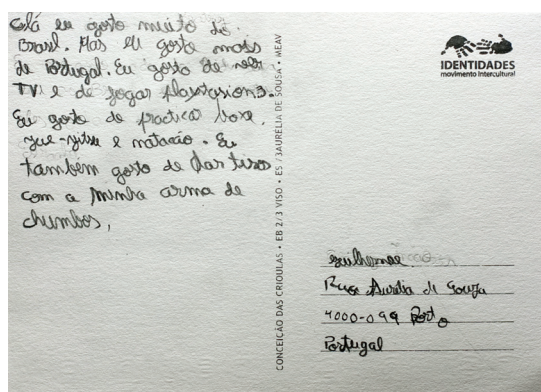 Olá eu gosto muito do
Brasil. Mas eu gosto mais
de Portugal. Eu gosto de ver
TV e de jogar playstasion3.
Eu gosto de practica boxe,
jue-jitsu e natacão. Eu
também gosto de dar tiros
com a minha arma de
chumbos,
CONCEIÇÃO DAS CRIOULAS • EB 2/3 VISO • ES /3AURÉLIA DE SOUSA • MEAV
IDENTIDADES
movimento intercultural
Guilherme
Rua Aurélia de Souza
4000-099 Porto
Portugal